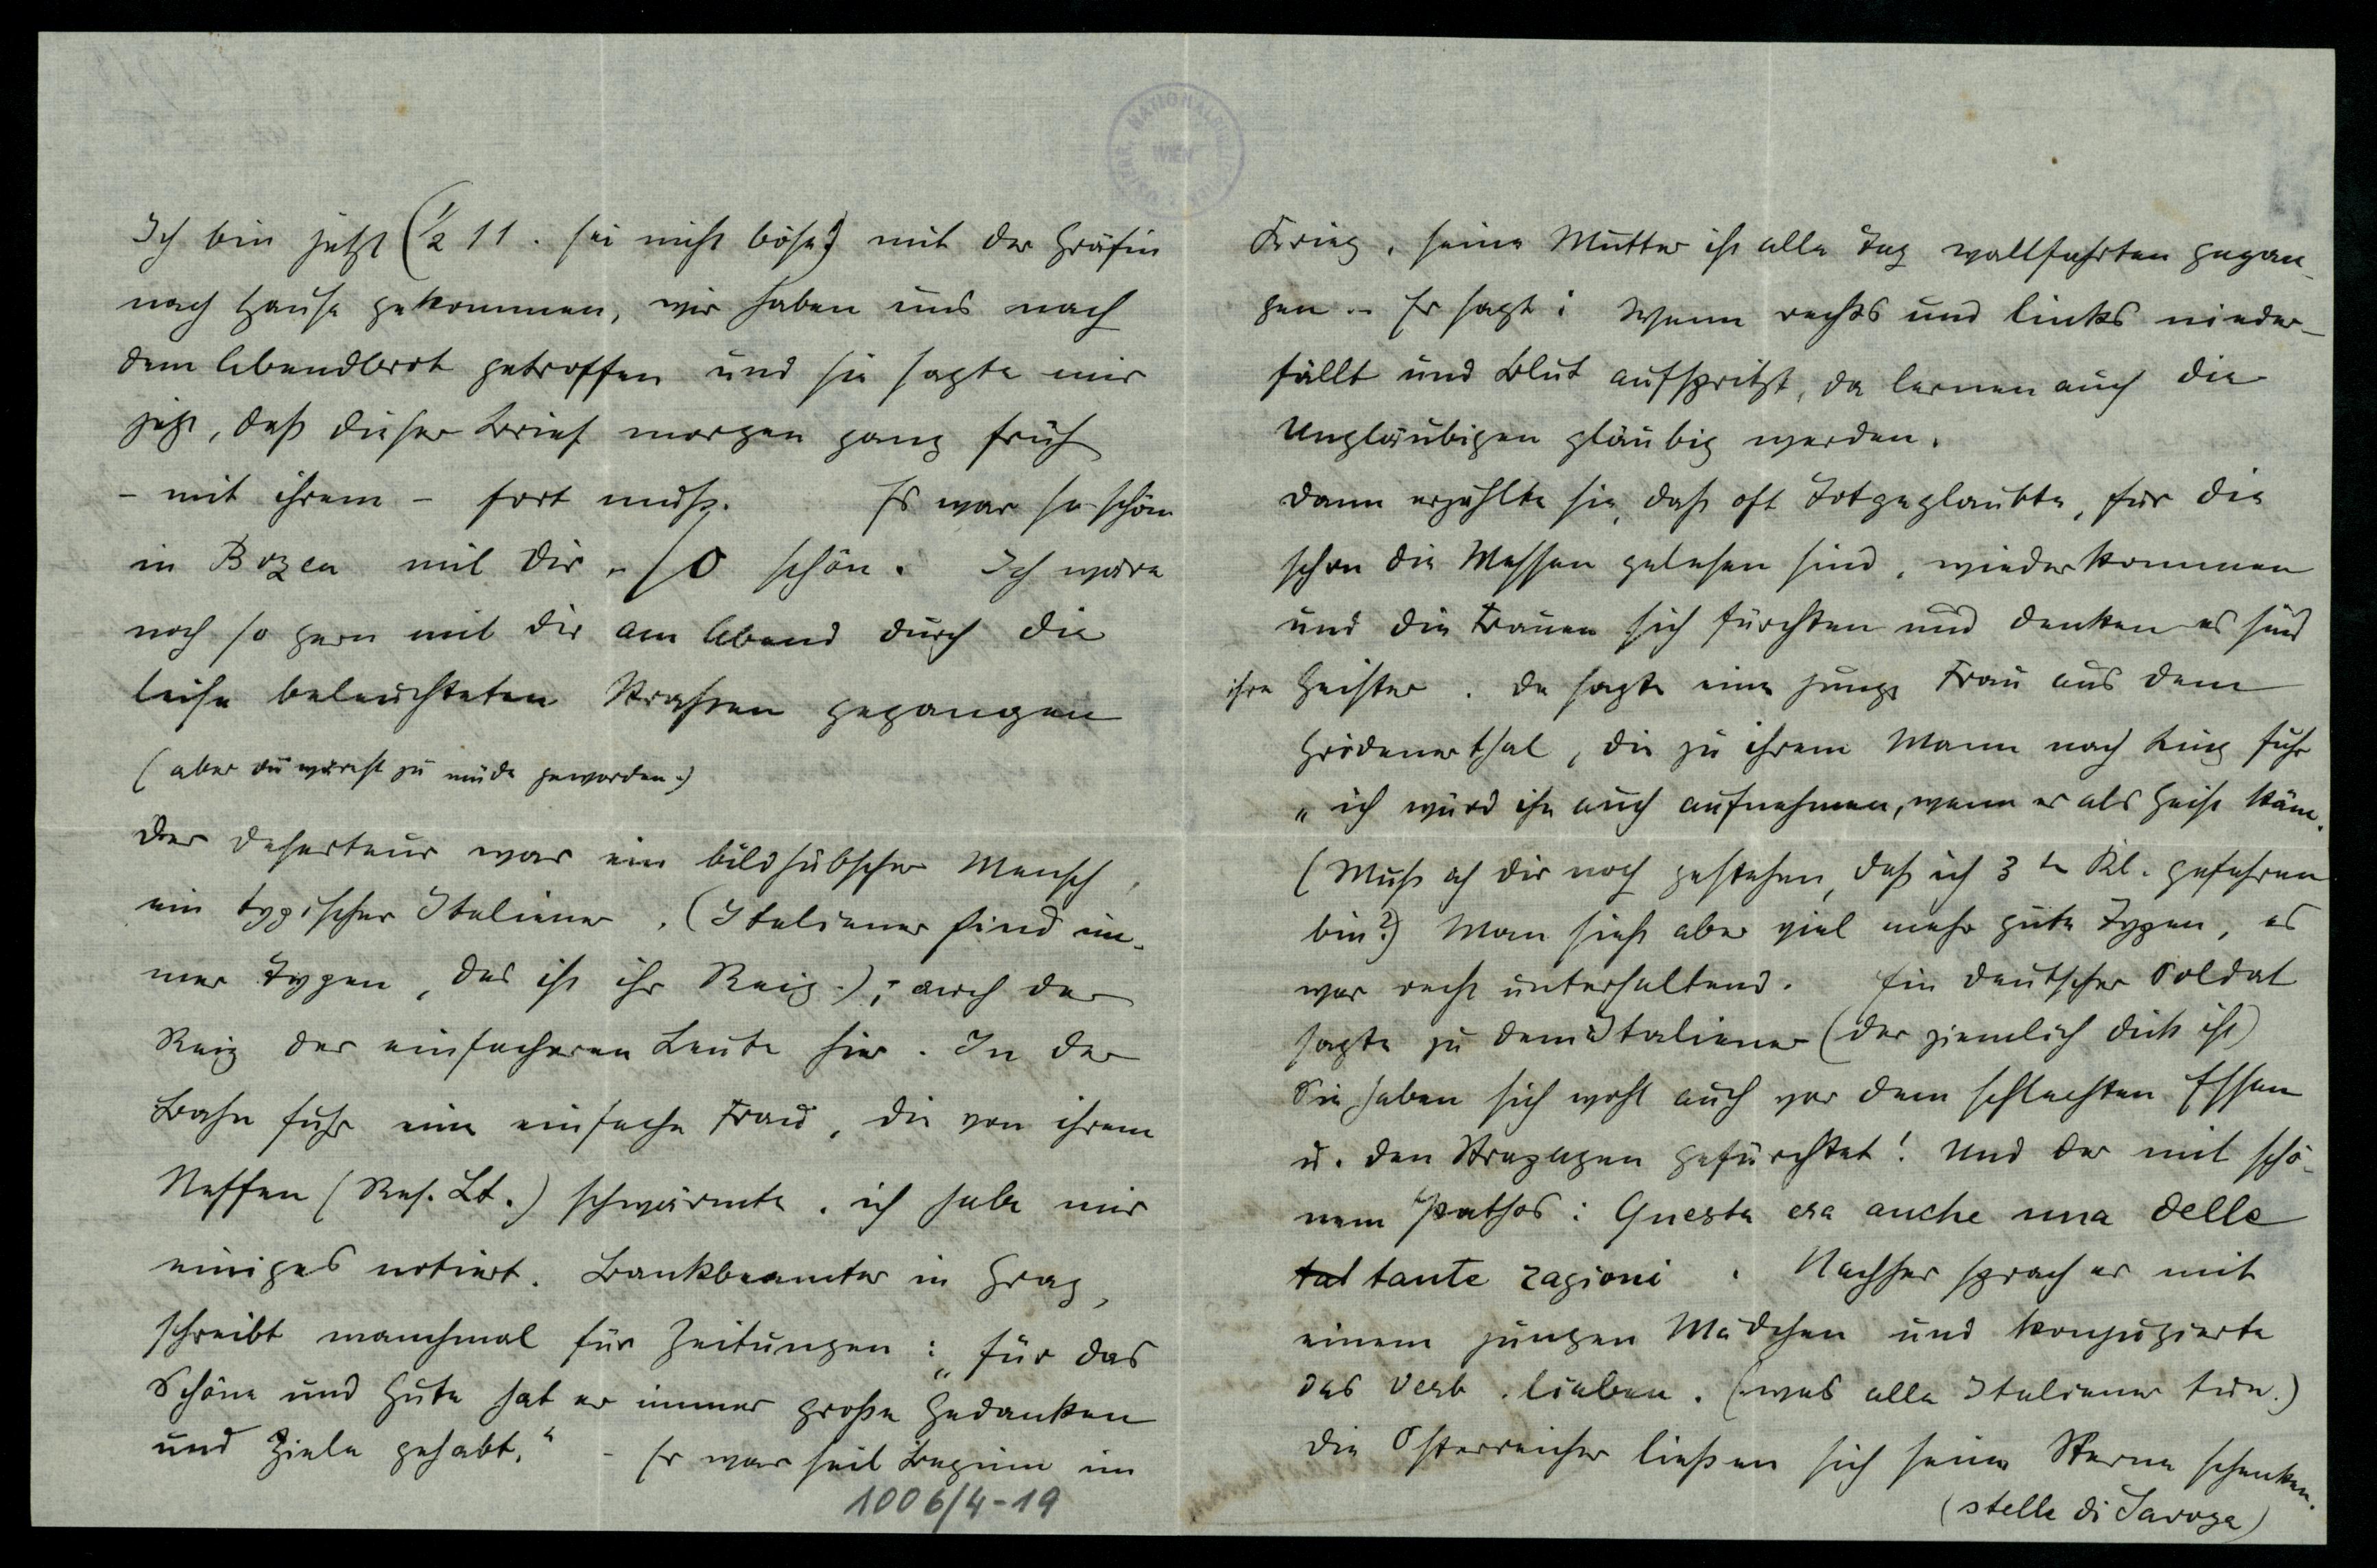 Ich bin jetzt (½ 11. sei nicht böse!) mit der Gräfin
nach Hause gekommen, wir haben uns nach
dem Abendbrot getroffen und sie sagte mir
jetzt, daß dieser Brief morgen ganz früh
- mit ihrem - fort muß. Es war so schön
in Bozen mit Dir - so schön. Ich wäre
noch so gern mit dir am Abend durch die
leise beleuchteten Strassen gegangen
(aber du wärest zu müde geworden.)
Der Deserteur war ein bildhübscher Mensch,
ein typischer Italiener. (Italiener sind im-
mer Typen, das ist ihr Reiz.); auch der
Reiz der einfacheren Leute hier. In der
Bahn fuhr eine einfache Frau, die von ihrem
Neffen (Res. Lt.) schwärmte. ich habe mir
einiges notiert. Bankbeamter in Graz,
schreibt manchmal für Zeitungen: „für das
Schöne und Gute hat er immer große Gedanken
und Ziele gehabt." - Er war seit Beginn im
1006/4-19
Krieg. seine Mutter ist alle Tag wallfahrten gegan-
gen - Er sagt: Wenn rechts und links nieder-
fällt und Blut aufspritzt, da lernen auch die
Ungläubigen gläubig werden.
Dann erzählte sie, daß oft Totgeglaubte, für die
schon die Messen gelesen sind, wiederkommen
und die Frauen sich fürchten und denken es sind
ihre Geister. Da sagte eine junge Frau aus dem
Grödenerthal, die zu ihrem Mann nach Linz fuhr
„ich würd ihn auch aufnehmen, wenn er als Geist käm.
(Muß ich dir noch gestehen, daß ich 3te Kl. gefahren
bin?) Man sieht aber viel mehr gute Typen, es
war recht unterhaltend. Ein deutscher Soldat
sagte zu dem Italiener (der ziemlich dick ist)
Sie haben sich wohl auch vor dem schlechten Essen
u. den Strapazen gefürchtet! Und der mit schö-
nem Pathos: Questa era anche una delle
tat tante ragioni. Nachher sprach er mit
einem jungen Mädchen und konjugierte
das Verb. lieben. (was alle Italiener tun.)
die Österreicher ließen sich seine Sterne schenken.
(stelle di Savoya)
ÖSTERR. NATIONALBIBLIOTHEK WIEN